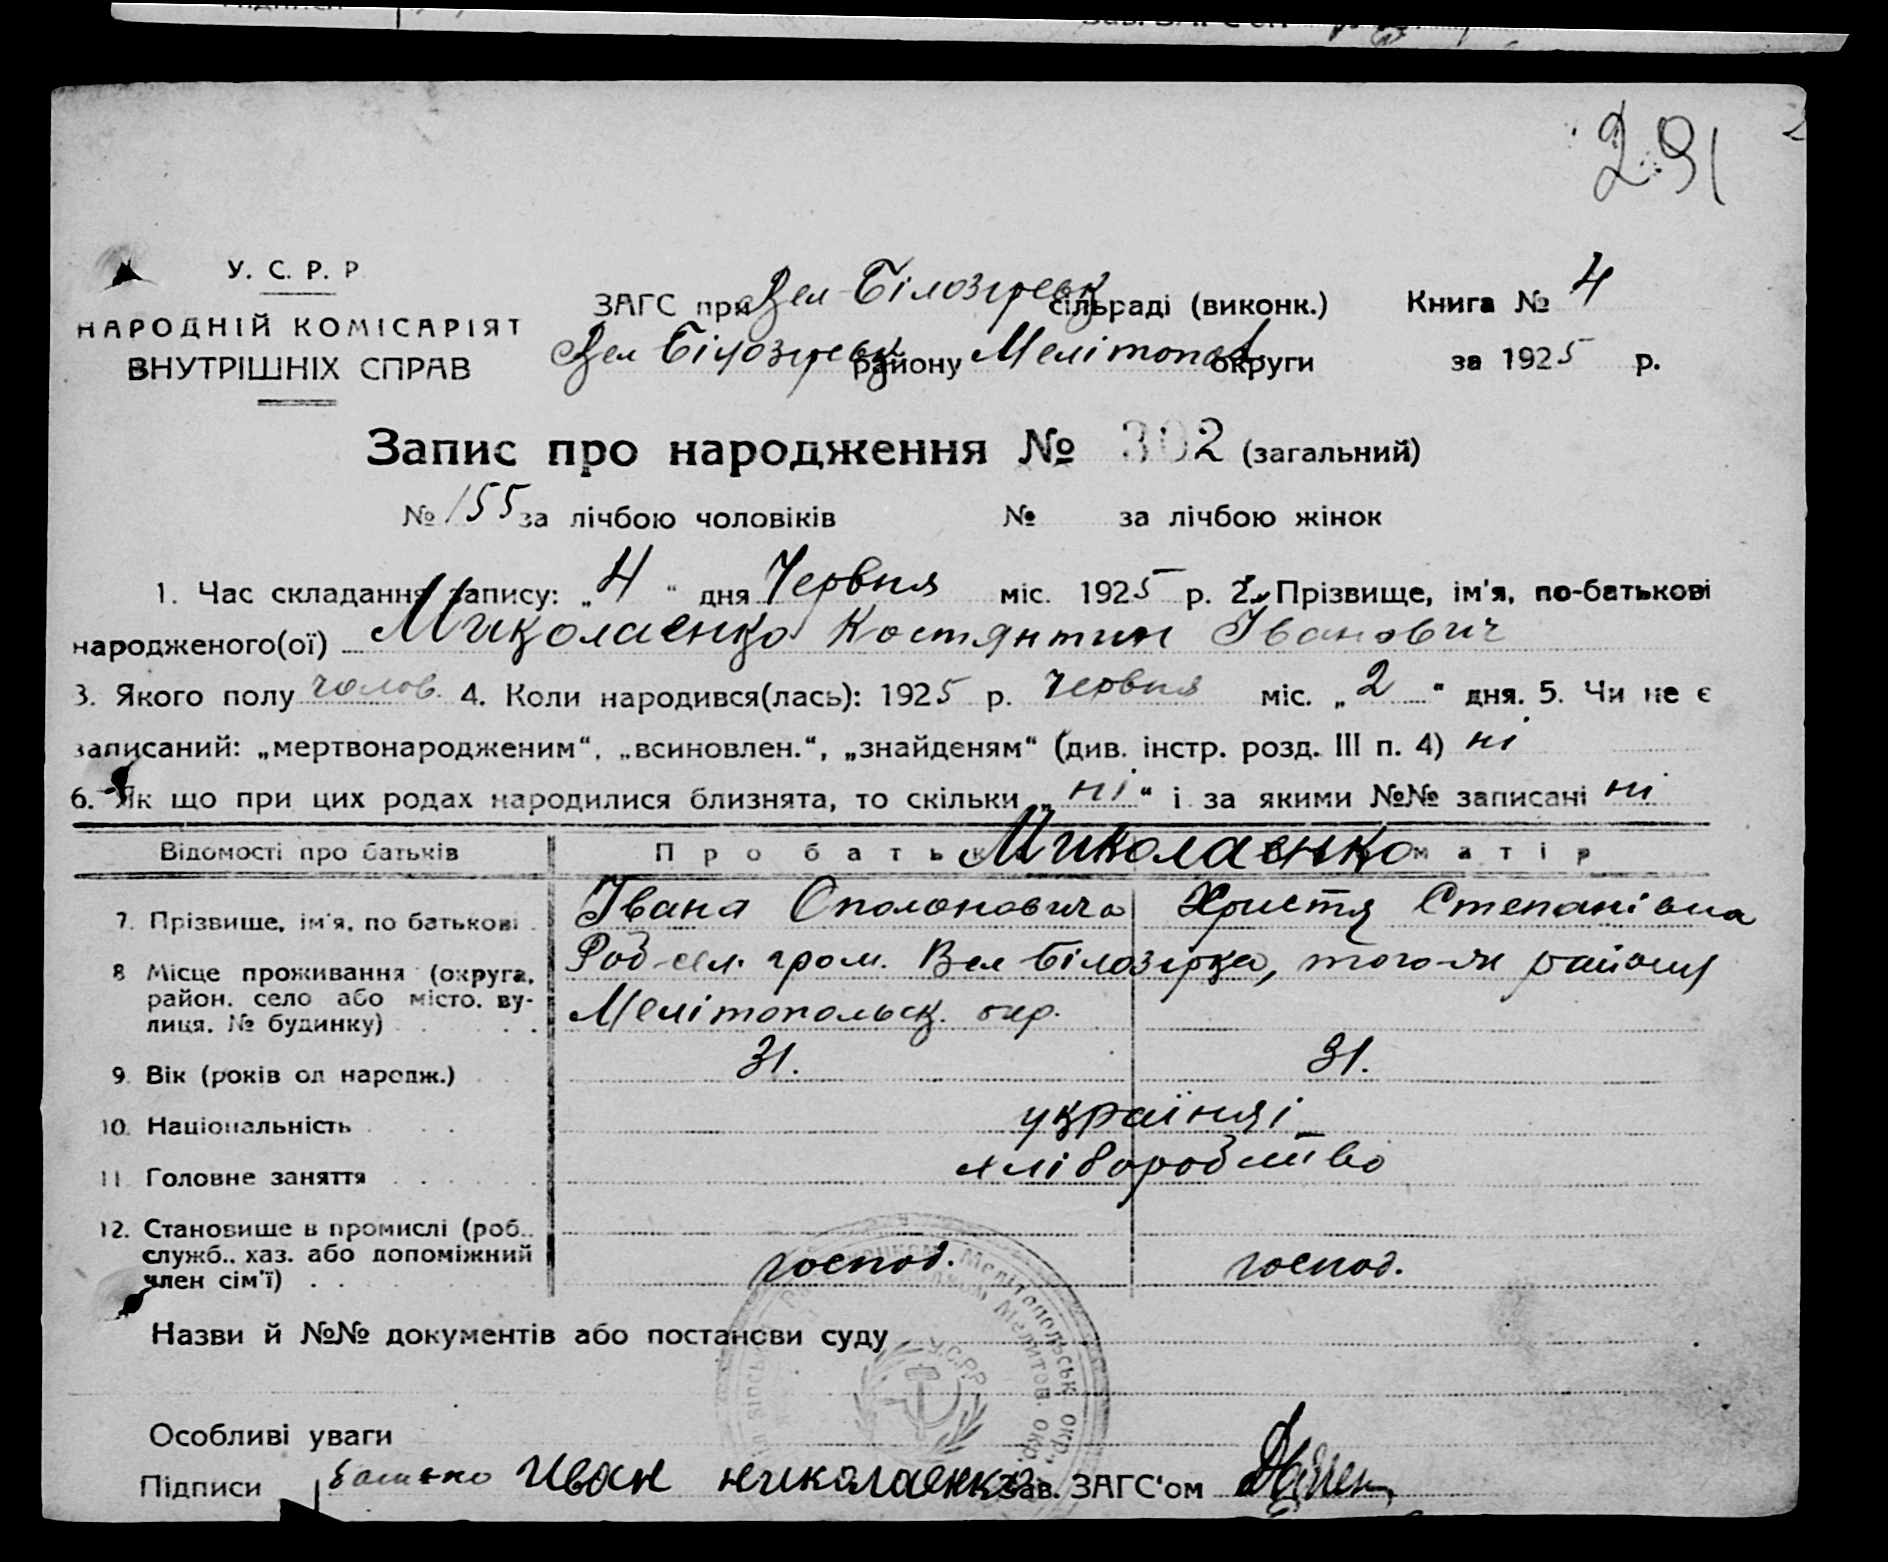 291
У. С. Р. Р.
НАРОДНІЙ КОМІСАРІЯТ
ВНУТРІШНІХ СПРАВ
ЗАГС при Вел-Білозірськ сільраді (виконк.) Книга № 4
Вел Білозірськ району Мелітопол. округи за 1925 р.
Запис про народження № 302 (загальний)
№ 155 за лічбою чоловіків № за лічбою жінок
1. Час складання запису: „4“ дня Червня міс. 1925 р. 2. Прізвище, ім'я, по-батькові
народженого(ої) Миколаенко Костянтин Іванович
3. Якого полу чолов. 4. Коли народився(лась): 1925 р. Червня міс. „2“ дня. 5. Чи не є
записаний: „мертвонародженим“, „всиновлен.“, „знайденям“ (див. інстр. розд. III п. 4) ні
6. Як що при цих родах народилися близнята, то скільки „ні“ і за якими №№ записані ні
Відомості про батьків Про батька Миколаенко матір
7. Прізвище, ім'я, по батькові Івана Ополоновича Христя Степанівна
8. Місце проживання (округа, Род-сел. гром. Вел Білозірка, того-ж району
район. село або місто. ву- Мелітопольськ. окр.
лиця. № будинку)
9. Вік (років од народж.) 31. 31.
10. Національність українці
11. Головне заняття хліборобство
12. Становище в промислі (роб..
служб.. хаз. або допоміжний господ. господ.
член сім'ї)
Назви й №№ документів або постанови суду
Мелітопольськ окр.
Мелитоп. окр.
У.С.Р.Р
Особливі уваги
Підписи батько Иван николаенко Зав. ЗАГС'ом